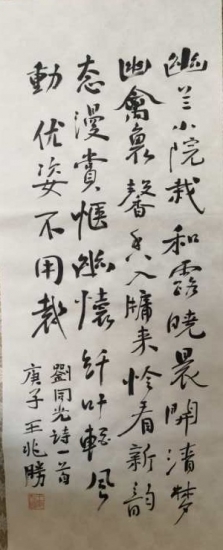 幽兰小院栽和露晓晨開清梦
幽禽裊馨香入牖来怜看新韵
态漫賞惬幽懷纤叶輕風
動优姿不用裁
劉同光诗一首
庚子王兆勝